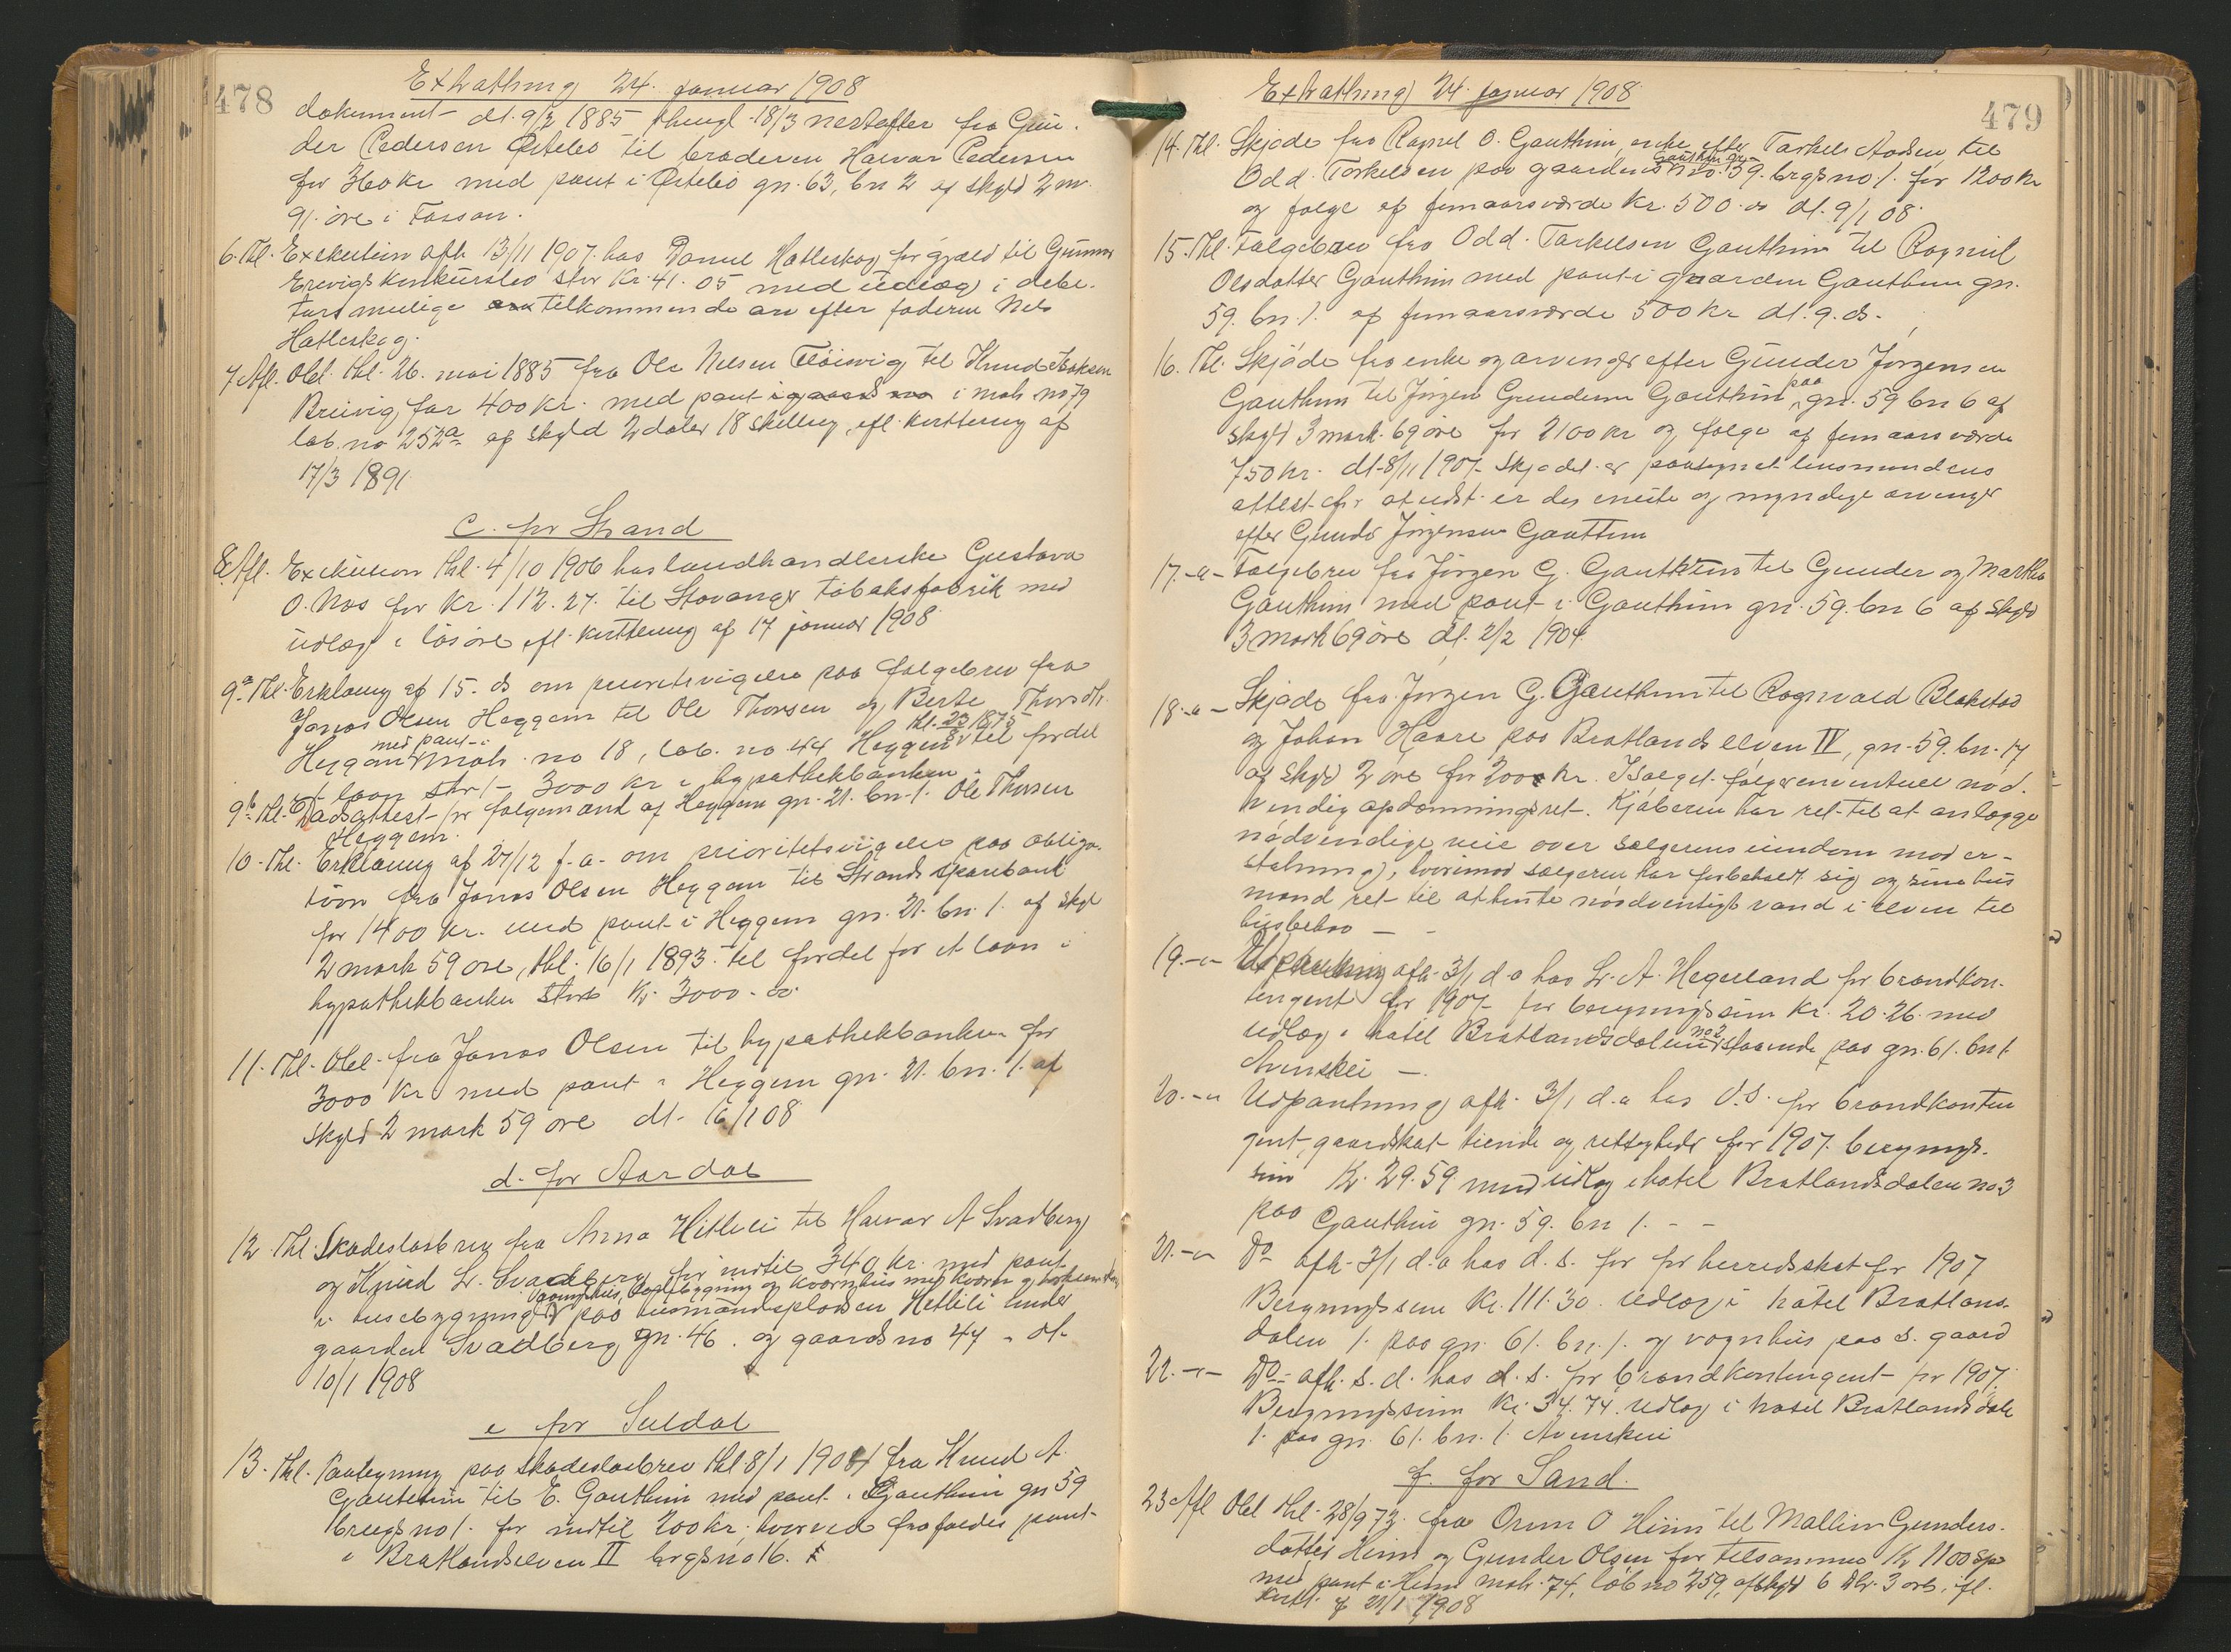 478
Extrathing 24. januar 1908
dokument dt. 9/2 1885 thingl. 18/3 nestefter fra Gun-
der Pedersen Østebø til broderen Halvar Pedersen
for 360 kr med pant i Østebø gn. 63, bn 2 af skyld 2 m.
91 øre i Fossan.
6. Thl. Exekution afh 13/11 1907 hos Daniel Hatleskog for gjæld til Gunnar
Erevigs konkursbo stor kr. 41.05 med udlæg i debi-
tors mulige tilkommende arv efter faderen Nels
Hatleskog.
7 Afl. Obl. thl. 26. mai 1885 fra Ole Nelsen til Knud Isaksen
Breivig for 400 kr. med pant i gaards no i matr no 79
løb. no 252a af skyld 2 daler 18 skilling, efl. kvittering af
17/3 1891
c. for Strand
8. Afl. Exekution thl. 4/10 1906 hos landhandlerske Gustava
O. Nas for kr. 112.27. til Stavanger tobaksfabrik med
udlæg i løsøre efl. kvittering af 17 januar 1908
9a Thl. Erklæring af 15. ds om prioritetsvigelse paa følgebrev fra
Jonas Olsen Heggem til Ole Thorsen og Berte Thorsdtr.
thl. 23/8 1875
med pant i
Heggem matr. no 18, løb. no 44 Heggem til fordel
f. laan stort 3000 kr i hypothekbanken
9b. Thl. Dødsattest for følgemand af Heggem gn. 21. bn. 1. Ole Thorsen
Heggem.
10. Thl. Erklæring af 27/12 f. a. om prioritetsvigelse paa obliga-
tion fra Jonas Olsen Heggem til Strands sparebank
for 1400 kr. med pant i Heggem gn. 21. bn. 1. af skyld
2 mark 59 øre, thl. 16/1 1893. til fordel for et laan i
hypothekbanken stort kr. 3000.00
11. Thl. Obl. fra Jonas Olsen til hypothekbanken for
3000 kr med pant i Heggem gn. 21. bn. 1. af
skyld 2 mark 59 øre dt. 16/1 08
d. for Aardal
12. Thl. Skadesløsbrev fra Anna Hetlili til Halvar A Svadberg
og Knud L. Svadberg for indtil 340 kr. med pant
i husebygning paa husmandspladsen Hetlili under
gaarden Svadberg gn. 46. og gaards no 47 - dt.
10/1 1908
e for Suldal
13. Thl. Paategning paa skadesløsbrev thl 8/1 1904 fra Knud A.
Gauthun til E. Gauthun med pant i Gauthun gn 59
brugs no 1. for indtil 200 kr. hvorved frafaldes pant
i Bratlandselven II brgs no 16.
479
Extrathing 24 januar 1908
14. Thl. Skjøde fra Ragnil O. Gauthun, enke efter Torkels Aadsen, til
Gauthun gr-
Odd Torkelsen paa gaardens no. 59. brgs no. 1. for 1200 kr
og følge af femaarsværde kr. 500.00 dt. 9/1 08
15. Thl. Følgebrev fra Odd. Torkelsen Gauthun til Ragnil
Olsdatter Gauthun med pant i gaarden Gauthun gn.
59. bn. 1. af femaarsværde 500 kr dt. 9. ds.
16. Thl. Skjøde fra enke og arvinger efter Gunder Jørgensen
paa
Gauthun til Jørgen Gundersen Gauthun gn. 59 bn 6 af
skyld 3 mark 69 øre for 2100 kr og følge af femaarsværde
750 kr. dt. 8/11 1907. Skjødet er paategnet lensmandens
attest for at udst. er de eneste og myndige arvinger
efter Gunder Jørgensen Gauthun
17. -"- Følgebrev fra Jørgen G. Gauthun til Gunder og Martha
Gauthun med pant i Gauthun gn. 59. bn 6 af skyld
3 mark 69 øre dt. 2/2 1904
18. -"- Skjøde fra Jørgen G. Gauthun til Ragnvald Blakstad
og Johan Haare paa Bratlandselven IV, gn. 59. bn. 17
af skyld 2 øre for 200 kr. I salget følger eventuel nød-
vendig opdæmningsret. Kjøberen har ret til at anlægge
nødvendige veie over sælgerens eiendom mod er-
statning, hvorimod sælgeren har forbeholdt sig og sine hus
mænd ret til at hente nødvendigt vand i elven til
husbehov
19. -"- Udpantning afh. 3/1 d. a hos L. A. Hegerland for brandkon-
tingent for 1907 for bergningssum kr. 20.26 med
no 3
udlæg i hotel Bratlandsdalen staaende paa gn. 61. bn 1
20. -"- Udpantning afh. 3/1 d. a hos d. s. for brandkontin
gent, gaardskat tiende og rettigheder for 1907. bergnings.
sum kr. 29.59 med udlæg i hotel Bratlandsdalen no 3
paa Gauthun gn. 59. bn 1.
21. -"- Do afh. 3/1 d. a hos d. s. for herredsskat for 1907
Bergningssum kr. 111.30. Udlæg i hotel Bratlands-
dalen 1. paa gn. 61. bn. 1. og vognhus paa s. gaard
22. -"- Do afh. s. d. hos d. s. for brandkontingent for 1907.
Bergningssum kr. 34.74. Udlæg i hotel Bratlandsdale
1. paa gn. 61. bn. 1.
f. for Sand.
23 Afl Obl thl. 28/9 72. fra Orm O Hiim til Mallin Gunders-
datter Hiim og Gunder Olsen for tilsammen 1100 Sp
med pant i Hiim matr. 74, løb no 259, af skyld 6 dlr. 3 ort, ifl.
kvitt. af 21/1 1908